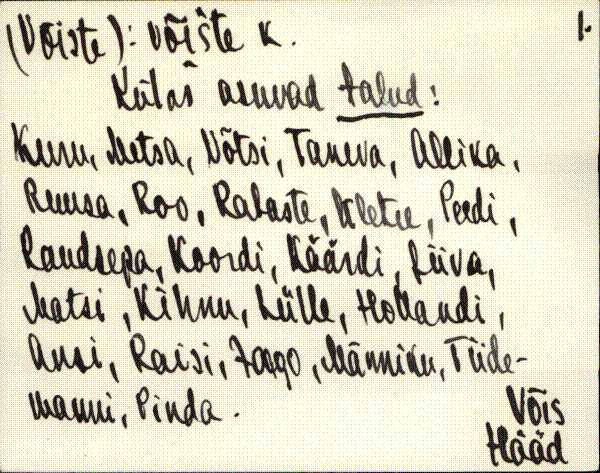 (Võiste): võište k. 1.
Külas asuvad talud:
Kuru, Metsa, Võtsi, Taneva, Allika,
Ruusa, Roo, Rabaste, Perdi,
Raudsepa, Koordi, Käärdi, Liiva,
Matsi, Kihnu, Lülle, Hollandi,
Ansi, Raisi, Jaago, Männiku, Tiide-
manni, Pinda.
Võis
Hääd